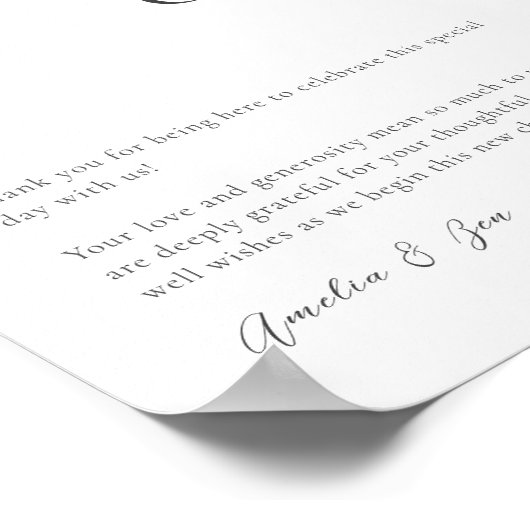 hank you for being here to celebrate this special
day with us!
Your love and generosity mean so much to
are deeply grateful for your thoughtful
well wishes as we begin this new
Amelia & Ben